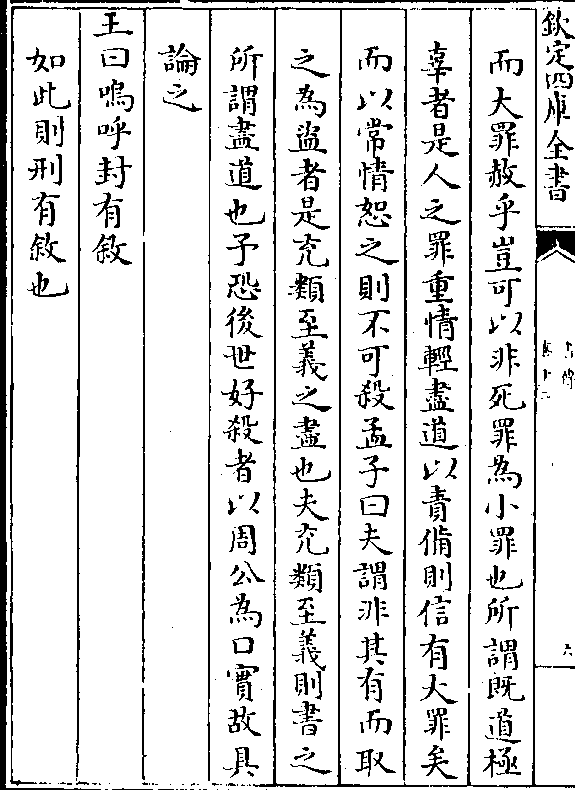 欽定四庫全書
而大罪赦乎豈可以非死罪為小罪也所謂既道極
辜者是人之罪重情輕盡道以責備則信有大罪矣
而以常情恕之則不可殺孟子曰夫謂非其有而取
之為盜者是充類至義之盡也夫充類至義則書之
所謂盡道也予恐後世好殺者以周公為口實故具
論之
王曰嗚呼封有敘
如此則刑有敘也